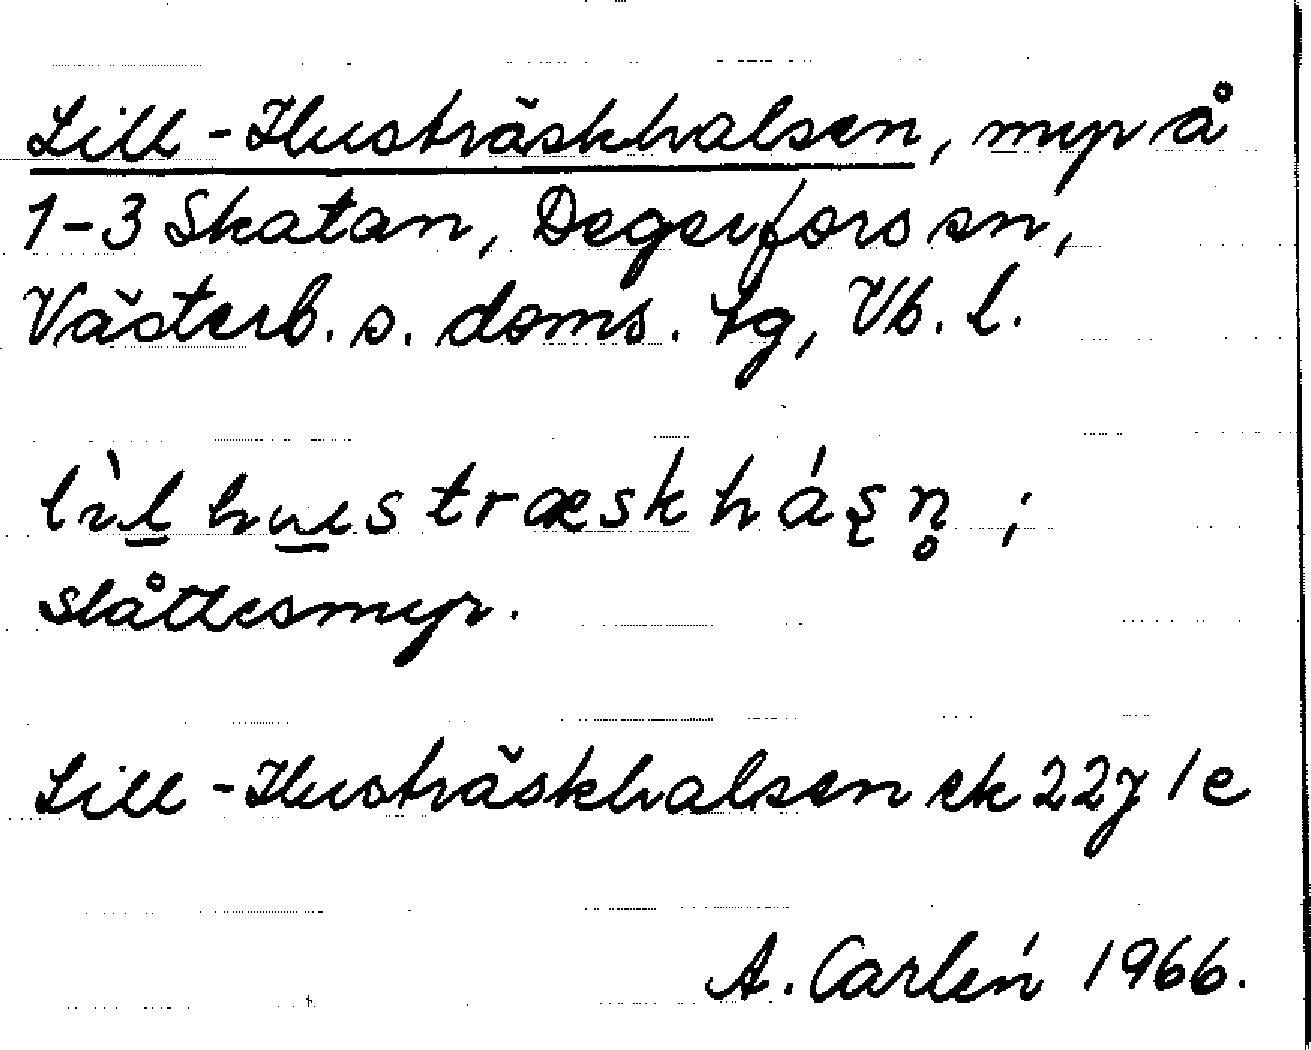 Lill-Husträskhalsen, myr å
1-3 Skatan, Degerfors sn,
Västerb. s. doms. tg, Vb. l.
slåttesmyr.
Lill-Husträskhalsen ek 22j 1e
A. Carlén 1966.